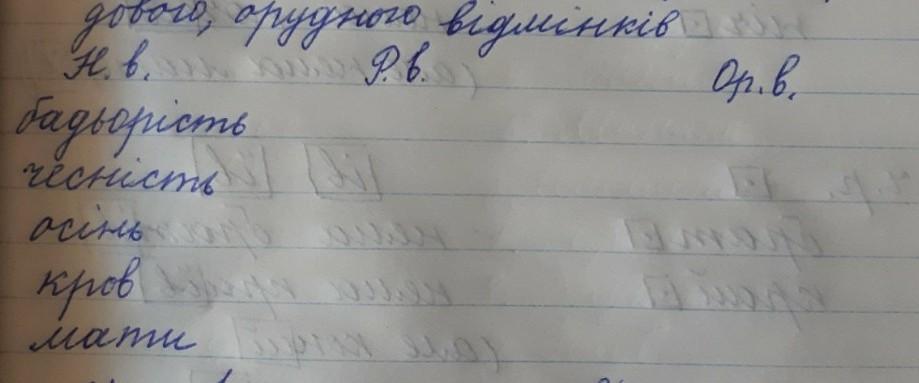 дового, орудного відмінків
Н. в. Р. в. Ор. в.
бадьорість
чесність
осінь
кров
мати